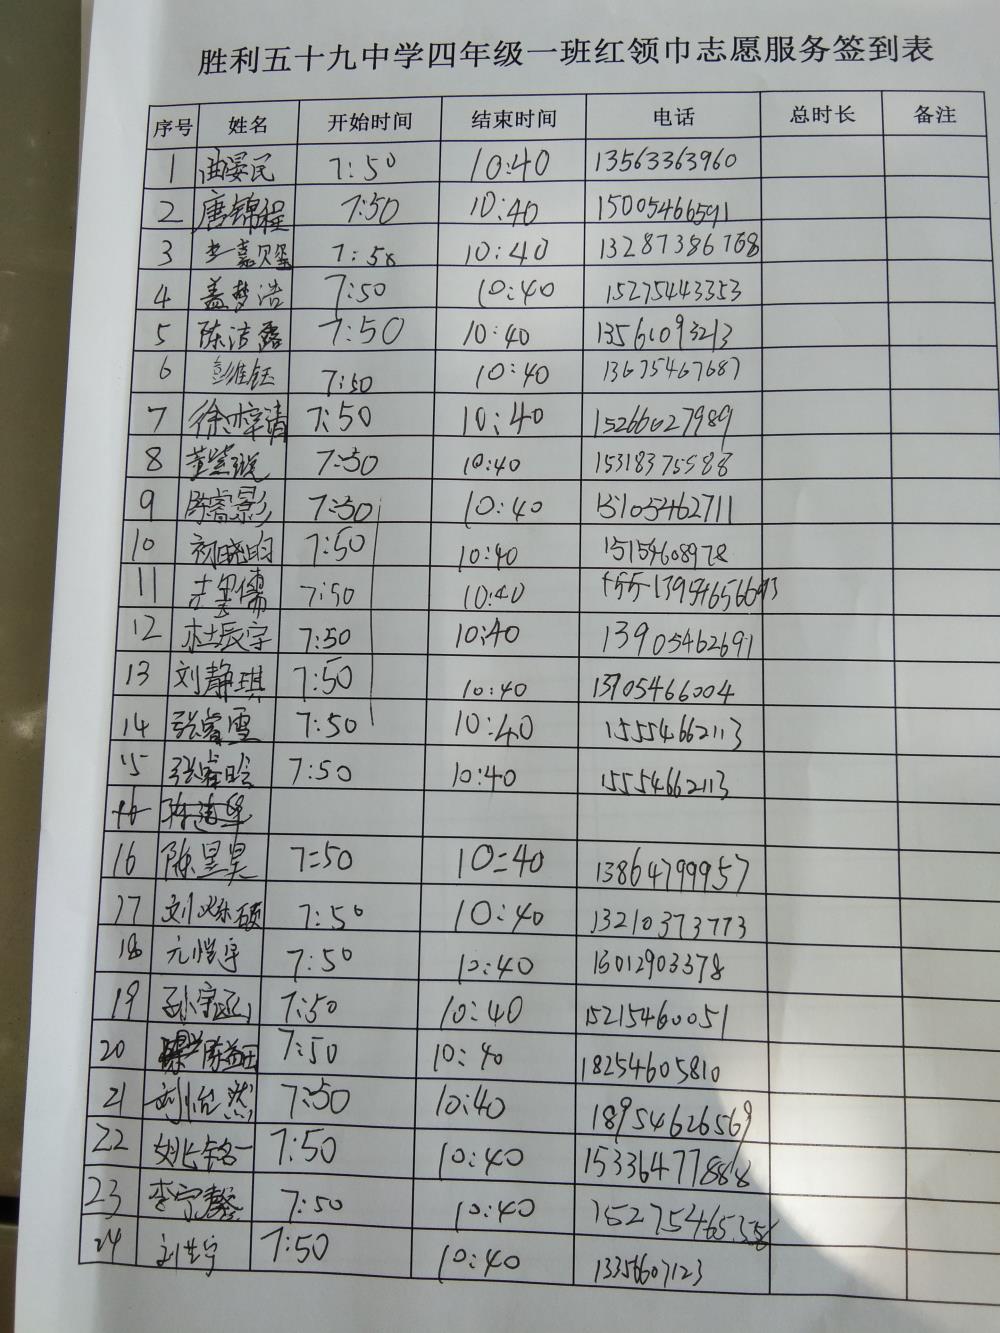 胜利五十九中学四年级一班红领巾志愿服务签到表
序号 姓名 开始时间 结束时间 电话 总时长 备注
1 曲晏民 7:50 10:40 13563363960
2 唐锦程 7:50 10:40 15005466591
3 7:50 10:40 13287386768
4 盖梦浩 7:50 10:40 15275443353
5 陈洁露 7:50 10:40 13561093213
6 彭维钰 7:50 10:40 13675467687
7 徐梓清 7:50 10:40 15266027989
8 7:50 10:40 15318375588
9 陈睿影 7:50 10:40 15105462711
10 初晓昀 7:50 10:40 15154608978
11 7:50 10:40
12 杜辰宇 7:50 10:40 13905462691
13 刘静琪 7:50 10:40 13705466004
14 张睿雯 7:50 10:40 15554662113
15 张睿晗 7:50 10:40 15554662113
16
16 陈昱昊 7=50 10=40 13864799957
17 刘烁硕 7:50 10:40 13210373773
18 元恺宇 7:50 10:40 15012903378
19 孙宇涵 7:50 10:40 15215460051
20 陈益田 7:50 10:40 18254605810
21 刘怡然 7:50 10:40 18954626569
22 姚铭一 7:50 10:40 15336477888
23 李宗馨 7:50 10:40
24 7:50 10:40 13356607123